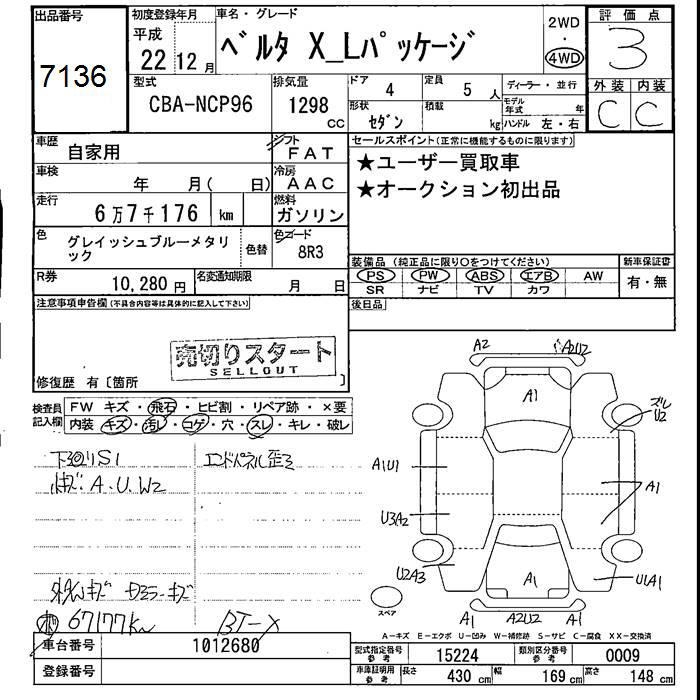 出品番号
7136
初度登録年月
平成
22 12月
車名・グレード
ベルタ X_Lパッケージ
2WD
・
4WD
評価点
3
外装 内装
C C
型式
CBA-NCP96
排気量
1298
CC
ドア
4
定員
5人
ディーラー・並行
形状
セダン
積載
kg
モデル年式
年
ハンドル 左・右
車歴
自家用
シフト
FAT
車検
年 月( 日)
冷房
AAC
走行
6万7千176 km
燃料
ガソリン
色
グレイッシュブルーメタリック
色替
色コード
8R3
R券
10,280円
名変通知期限
月 日
セールスポイント(正常に機能するものに限ります)
★ユーザー買取車
★オークション初出品
装備品(純正品に限り○をつけてください)
PS PW ABS エアB AW
SR ナビ TV カワ
新車保証書
有・無
後日品
注意事項申告欄(不具合内容等は具体的に記入して下さい)
売切りスタート
SELLOUT
修復歴 有〔箇所 〕
検査員記入欄
FW キズ・飛石・ヒビ割・リペア跡・×要
内装 キズ・汚レ・コゲ・穴・スレ・キレ・破レ
下廻りS1 エンドパネル歪ミ
A.U.W2
67177Km
A2
A2U2
A1
ズレ
U2
A1U1
A1
U3A2
U2A3
A1
U1A1
A1
A2U2
A1
スペア
A-キズ E-エクボ U-凹み W-補修跡 S-サビ C-腐食 XX-交換済
車台番号
1012680
登録番号
型式指定番号
参考
15224
類別区分番号
参考
0009
車庫証明用
参考
長さ 430 cm 幅 169 cm 高さ 148 cm